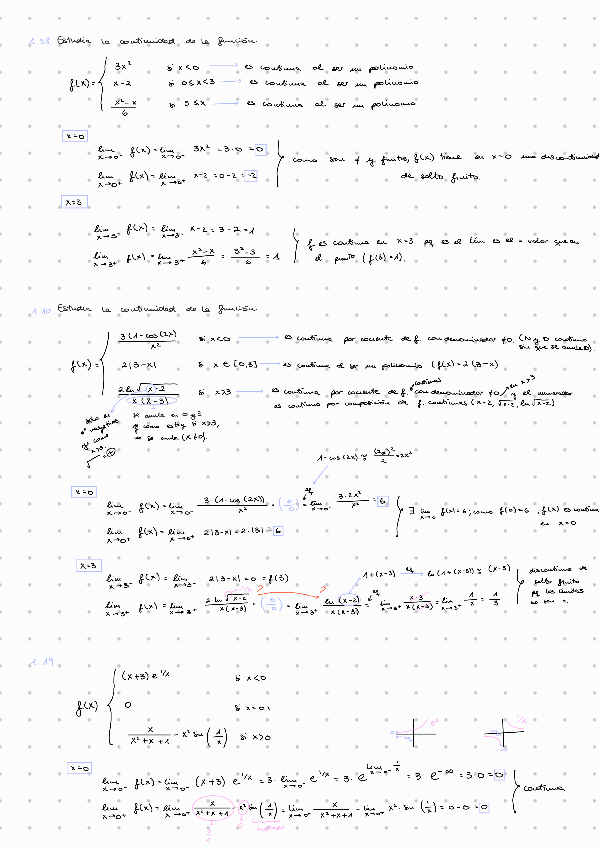 1.38. Estudia la continuidad de la función.
f(x) = { 3x² si x<0 → es continua al ser un polinomio
x-2 si 0≤x<3 → es continua al ser un polinomio
(x²-x)/6 si 3≤x → es continua al ser un polinomio
x=0
lim x→0⁻ f(x) = lim x→0⁻ 3x² = 3·0 = 0
lim x→0⁺ f(x) = lim x→0⁺ x-2 = 0-2 = -2
como son ≠ y finitos, f(x) tiene en x=0 una discontinuidad
de salto finito.
x=3
lim x→3⁻ f(x) = lim x→3⁻ x-2 = 3-2 = 1
lim x→3⁺ f(x) = lim x→3⁺ (x²-x)/6 = (3²-3)/6 = 1
f es continua en x=3 pq es el lím es el = valor que en
el punto (f(3)=1).
1.10. Estudia la continuidad de la función.
f(x) = { 3(1-cos(2x))/x² si x<0 → es continua por cociente de f. con denominador ≠0. (N y D continuas
2|3-x| si x ∈ [0,3] → es continua al ser un polinomio (f(x)=2(3-x)
2 ln √(x-2) / x(x-3) si x>3 → es continua por cociente de f. continuas con denominador ≠0 en x>3 y el numerador
es continua por composición de f. continuas (x-2, √x-2, ln √x-2)
se anula en 0 y 3
y como estoy en x>3,
no se anula (x≠0).
1-cos(2x) ≈ (2x)²/2 = 2x²
x=0
lim x→0⁻ f(x) = lim x→0⁻ 3·(1-cos(2x))/x² = (0/0) = lim x→0⁻ 3·2x²/x² = 6
lim x→0⁺ f(x) = lim x→0⁺ 2|3-x| = 2·(3) = 6
∃ lim x→0 f(x) = 6; como f(0)=6, f(x) es continua
en x=0
x=3
lim x→3⁻ f(x) = lim x→3⁻ 2|3-x| = 0 = f(3)
1+(x-3) → ln(1+(x-3)) ≈ (x-3)
lim x→3⁺ f(x) = lim x→3⁺ 2 ln √(x-2) / x(x-3) = (0/0) = lim x→3⁺ ln(x-2) / x(x-3) = lim x→3⁺ (x-3)/x(x-3) = lim x→3⁺ 1/x = 1/3
discontinua de
salto finito
pq los límites
no son =.
1.19
f(x) { (x+3) e^(1/x) si x<0
0 si x=0
x/(x²+x+1) - x² sen(1/x) si x>0
x=0
lim x→0⁻ f(x) = lim x→0⁻ (x+3) e^(1/x) = 3· lim x→0⁻ e^(1/x) = 3· e^(lim x→0⁻ 1/x) = 3 e^(-∞) = 3·0 = 0
lim x→0⁺ f(x) = lim x→0⁺ x/(x²+x+1) - x² sin(1/x) = lim x→0⁺ x/(x²+x+1) - lim x→0⁺ x²·sin(1/x) = 0-0 = 0
continua